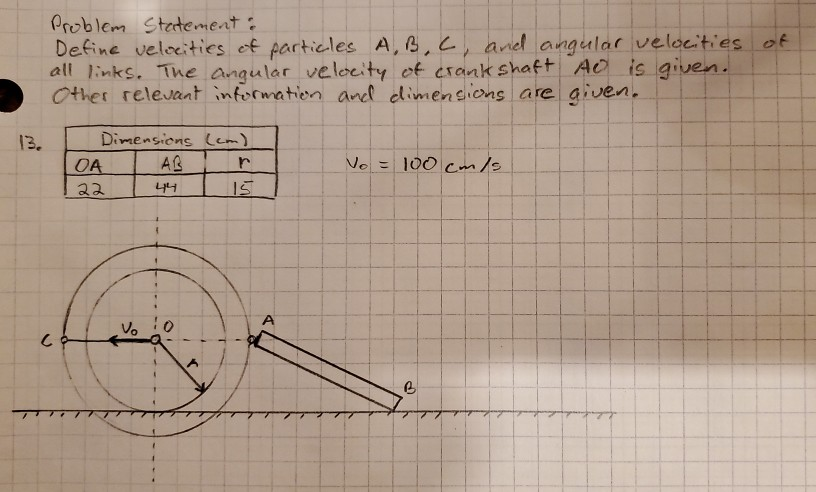 Problem Statement:
Define velocities of particles A, B, C, and angular velocities of
all links. The angular velocity of crankshaft AO is given.
Other relevant information and dimensions are given.
13.
Dimensions (cm)
OA AB r
22 44 15
V₀ = 100 cm/s
C V₀ O A
r
B